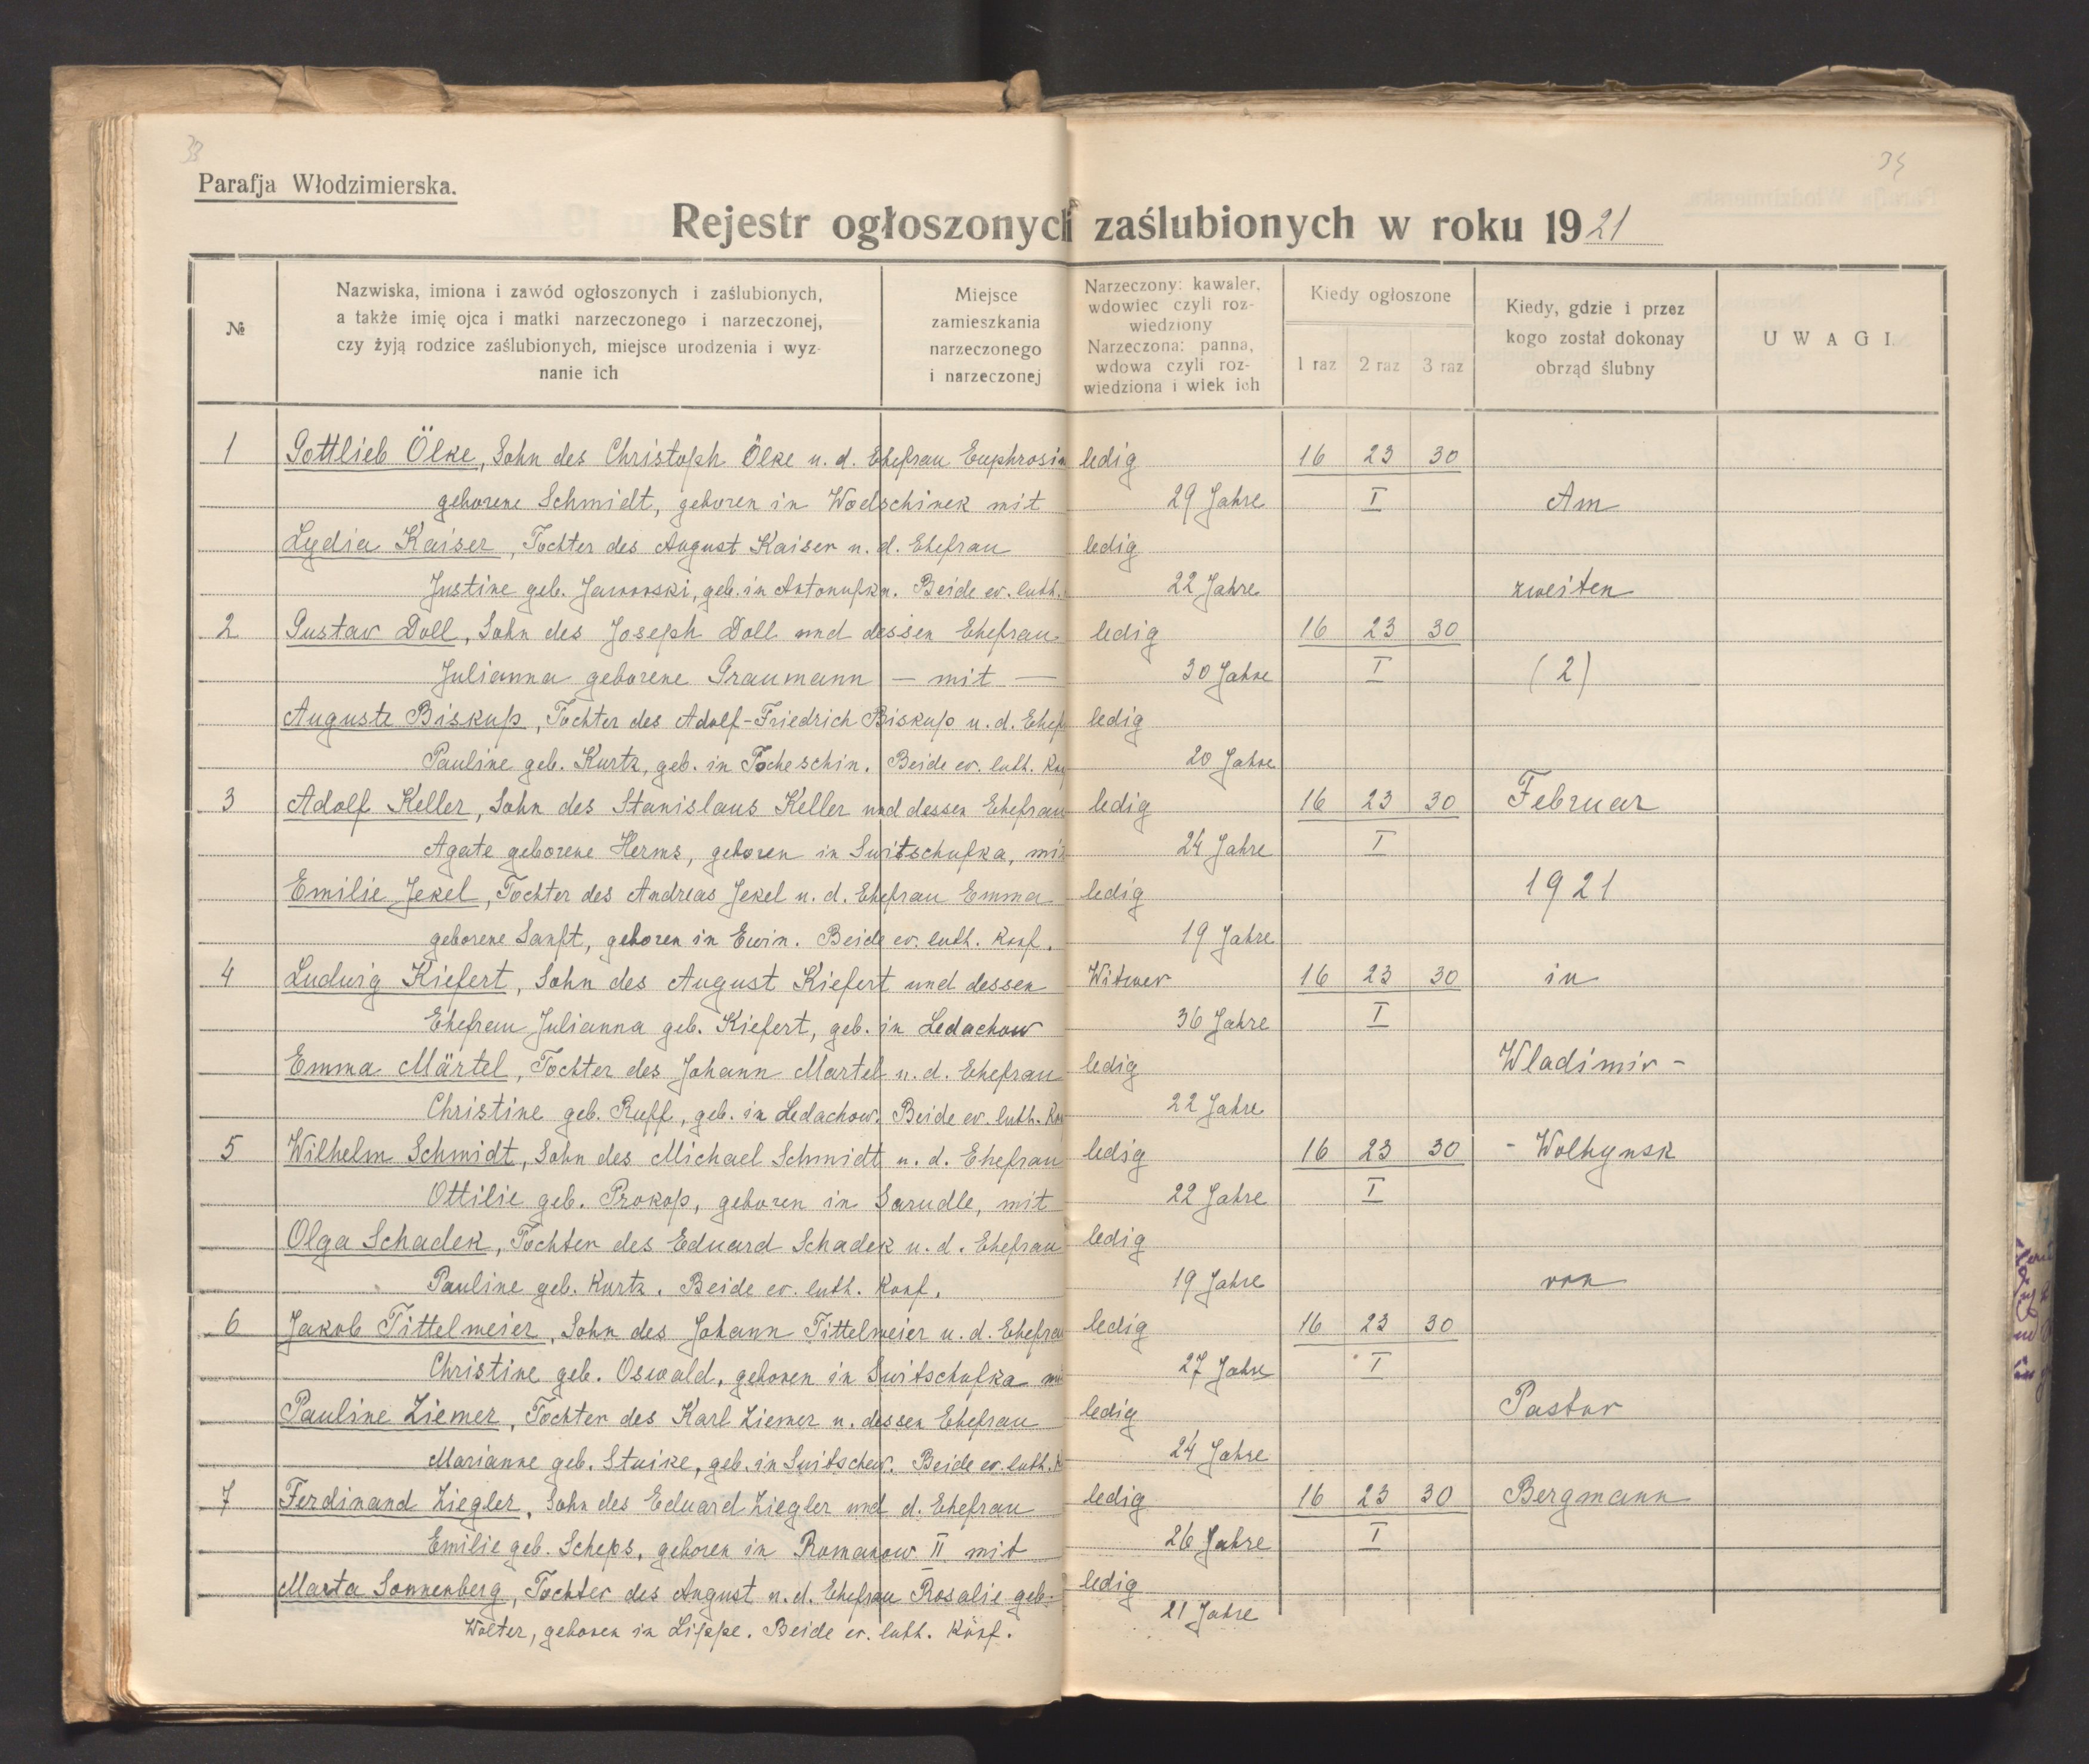 33
34
Parafja Włodzimierska.
Rejestr ogłoszonych i zaślubionych w roku 1921
№
Nazwiska, imiona i zawód ogłoszonych i zaślubionych,
a także imię ojca i matki narzeczonego i narzeczonej,
czy żyją rodzice zaślubionych, miejsce urodzenia i wyz-
nanie ich
Miejsce
zamieszkania
narzeczonego
i narzeczonej
Narzeczony: kawaler,
wdowiec czyli roz-
wiedziony
Narzeczona: panna,
wdowa czyli roz-
wiedziona i wiek ich
Kiedy ogłoszone
1 raz 2 raz 3 raz
Kiedy, gdzie i przez
kogo został dokonay
obrząd ślubny
UWAGI.
1 Gottlieb Ölke, Sohn des Christoph Ölke u. d. Ehefrau Euphrosin ledig 16 23 30
geborene Schmidt, geboren in Wodschinek mit 29 Jahre I Am
Lydia Kaiser, Tochter des August Kaiser u. d. Ehefrau ledig
Justine geb. Jaworski, geb. in Antonufka. Beide ev. luth. 22 Jahre zweiten
2 Gustav Doll, Sohn des Joseph Doll und dessen Ehefrau ledig 16 23 30
Julianna geborene Graumann — mit — 30 Jahre I (2)
Auguste Biskup, Tochter des Adolf-Friedrich Biskup u. d. Ehef ledig
Pauline geb. Kurtz, geb. in Tocheschin. Beide ev. luth. Kon 20 Jahre
3 Adolf Keller, Sohn des Stanislaus Keller und dessen Ehefrau ledig 16 23 30 Februar
Agate geborene Herms, geboren in Switschufka, mit 24 Jahre I
Emilie Jekel, Tochter des Andreas Jekel u. d. Ehefrau Emma ledig 1921
geborene Sanft, geboren in Ewin. Beide ev. luth. Konf. 19 Jahre
4 Ludwig Kiefert, Sohn des August Kiefert und dessen Witwer 16 23 30 in
Ehefrau Julianna geb. Kiefert, geb. in Ledachow 36 Jahre I
Emma Märtel, Tochter des Johann Martel u. d. Ehefrau ledig Wladimir -
Christine geb. Ruff, geb. in Ledachow. Beide ev. luth. Kon 22 Jahre
5 Wilhelm Schmidt, Sohn des Michael Schmidt u. d. Ehefrau ledig 16 23 30 - Wolhynsk
Ottilie geb. Prokop, geboren in Sarudle, mit 22 Jahre I
Olga Schadek, Tochter des Eduard Schadek u. d. Ehefrau ledig
Pauline geb. Kurtz. Beide ev. luth. Konf. 19 Jahre von
6 Jakob Tittelmeier, Sohn des Johann Tittelmeier u. d. Ehefrau ledig 16 23 30
Christine geb. Oswald, geboren in Switschufka mi 27 Jahre I
Pauline Ziemer, Tochter des Karl Ziemer u. dessen Ehefrau ledig Pastor
Marianne geb. Stuike, geb. in Switschew. Beide ev. luth. K 24 Jahre
7 Ferdinand Ziegler, Sohn des Eduard Ziegler und d. Ehefrau ledig 16 23 30 Bergmann
Emilie geb. Scheps, geboren in Romanow II mit 26 Jahre I
Marta Sonnenberg, Tochter des August u. d. Ehefrau Rosalie geb. ledig
Wolter, geboren in Lippe. Beide ev. luth. Konf. 21 Jahre